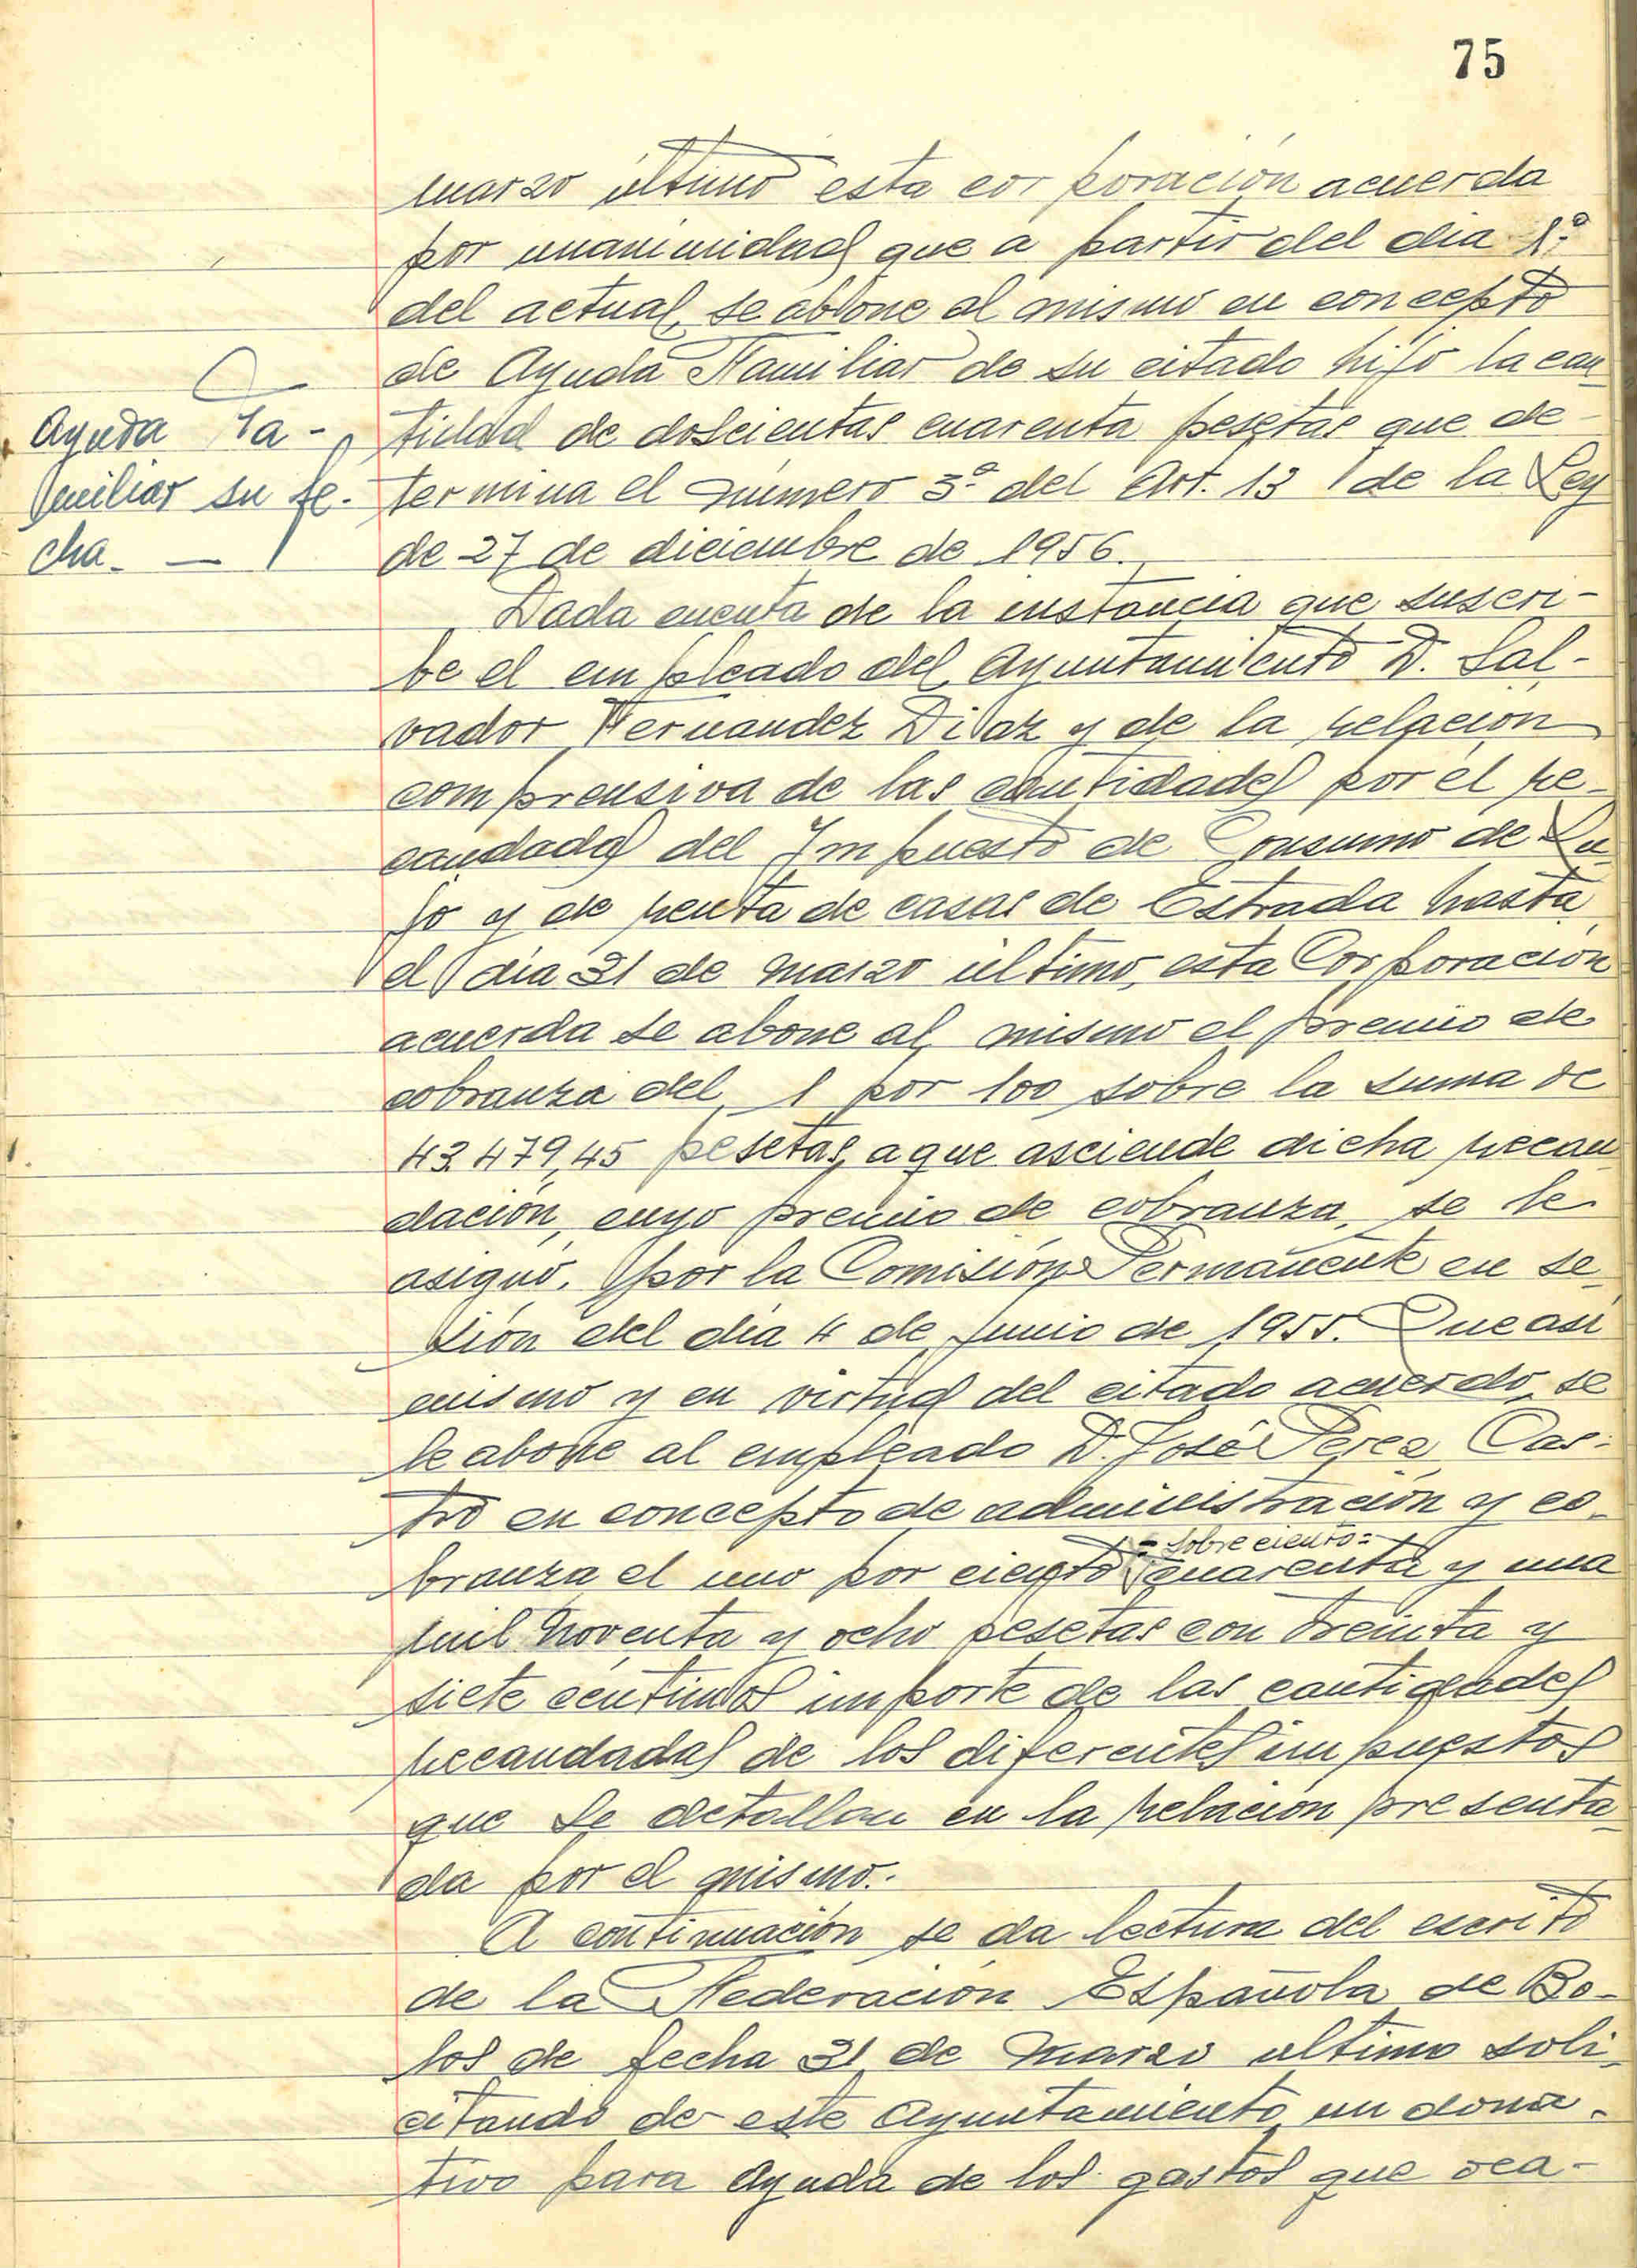 75
marzo último esta corporación acuerda
por unanimidad que a partir del dia 1º
del actual, se abone al mismo en concepto
de Ayuda Familiar de su citado hijo la can
Ayuda Fa-
miliar su fe-
cha. —
tidad de doscientas cuarenta pesetas que de-
termina el número 3º del Art. 13 de la Ley
de 27 de diciembre de 1956.
Dada cuenta de la instancia que suscri-
be el empleado del Ayuntamiento D. Sal-
vador Fernandez Diaz y de la relación
comprensiva de las cantidades por él re-
caudadas del Impuesto de Consumo de Lu-
jo y de renta de casas de Estrada hasta
el dia 31 de marzo último, esta Corporación
acuerda se abone al mismo el premio de
cobranza del 1 por 100 sobre la suma de
43.479,45 pesetas, a que asciende dicha recau
dación, cuyo premio de cobranza, se le
asignó, por la Comisión Permanente en se-
sión del dia 4 de junio de 1955. Que asi
mismo y en virtud del citado acuerdo, se
le abone al empleado D. José Perez Cas-
tro en concepto de administración y co-
= sobre ciento =
branza el uno por ciento cuarenta y una
mil noventa y ocho pesetas con treinta y
siete centimos importe de las cantidades
recaudadas de los diferentes impuestos
que se detallan en la relación presenta-
da por el mismo.
A continuación se da lectura del escrito
de la Federación Española de Bo-
los de fecha 31 de marzo ultimo soli-
citando de este Ayuntamiento un dona-
tivo para ayuda de los gastos que oca-